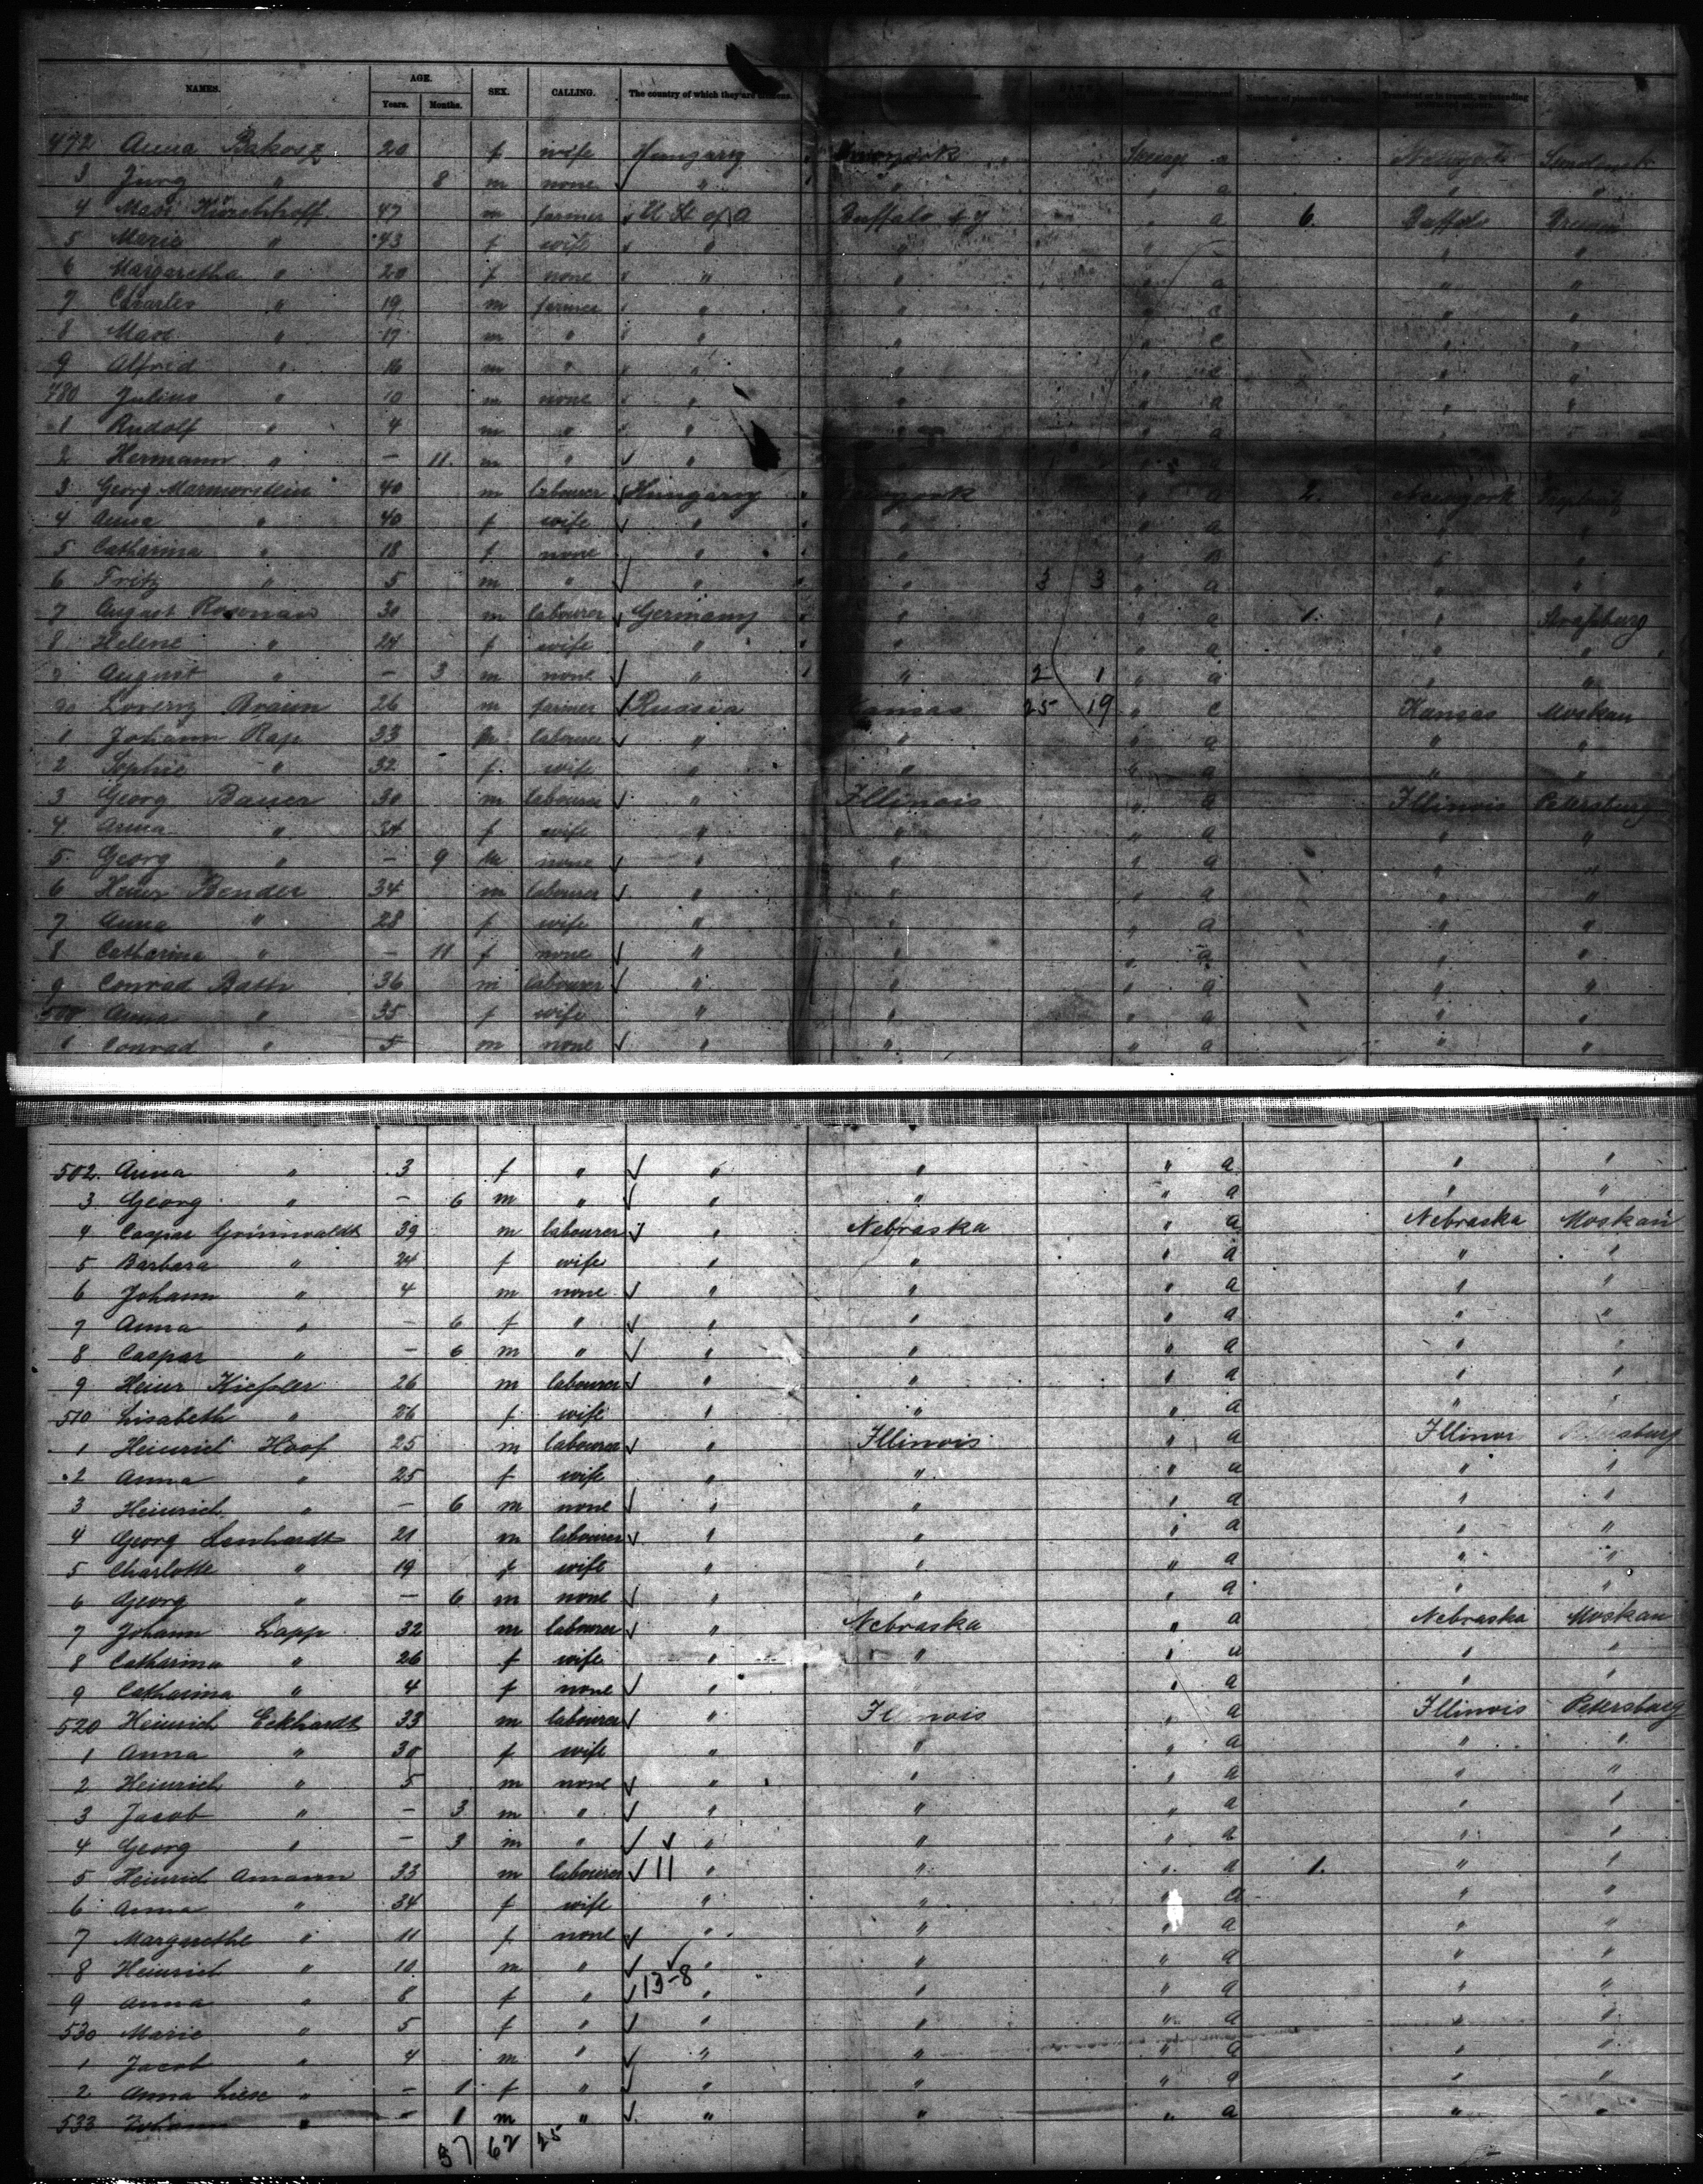 NAMES. AGE. SEX. CALLING. The country of which they are citizens.
Years. Months.
472 Anna Bakosz 20 f wife Hungary Newyork Steerage a Newyork
3 Jurg " 8 m none " " " a " "
4 Max Kirschhoff 47 m farmer U St of A Buffalo N Y " a 6. Buffalo Bremen
5 Marie " 43 f wife " " " " "
6 Margaretha " 20 f none " " " a " "
7 Charles " 19 m farmer " " " c " "
8 Max " 17 m " " " " c " "
9 Alfred " 16 m " " " " c " "
480 Julius " 10 m none " " " a " "
1 Rudolf " 4 m " " " " a " "
2 Hermann " – 11. m " " " " a
3 Georg Marmorstein 40 m labourer Hungary Newyork " a 2. Newyork
4 Anna " 40 f wife " " " a " "
5 Catharina " 18 f none " " " a " "
6 Fritz " 5 m " " " 3 3 " a " "
7 August Rosenau 30 m labourer Germany " " a 1. " Straßburg
8 Helene " 24 f wife " " " a " "
9 August " – 3 m none " " 2 1 " a " "
90 Lorenz Braun 26 m farmer Russia Kansas 25 19 " c Kansas Moskau
1 Johann Rap 33 m labourer " " " a " "
2 Sophie " 32 f wife " " " a " "
3 Georg Bauer 30 m labourer " Illinois " a Illinois Petersburg
4 Anna " 34 f wife " " " a " "
5 Georg " – 9 m none " " " a " "
6 Heinr Bender 34 m labourer " " " a " "
7 Anna " 28 f wife " " " a " "
8 Catharina " – 11 f none " " " a " "
9 Conrad Bath 36 m labourer " " " a " "
500 Anna " 35 f wife " " " a " "
1 Conrad " 5 m none " " " a " "
502. Anna " 3 f " " " " a " "
3 Georg " – 6 m " " " " a " "
4 Caspar Grünwaldt 39 m labourer " Nebraska " a Nebraska Moskau
5 Barbara " 24 f wife " " " a " "
6 Johann " 4 m none " " " a " "
7 Anna " – 6 f " " " " a " "
8 Caspar " – 6 m " " " " a " "
9 Heinr Kießler 26 m labourer " " " a " "
510 Lisabeth " 26 f wife " " " a " "
1 Heinrich Hoof 25 m labourer " Illinois " a Illinois Petersburg
2 Anna " 25 f wife " " " a " "
3 Heinrich " – 6 m none " " " a " "
4 Georg Lenhardt 21 m labourer " " " a " "
5 Charlotte " 19 f wife " " " a " "
6 Georg " – 6 m none " " " a " "
7 Johann Lapp 32 m labourer " Nebraska " a Nebraska Moskau
8 Catharina " 26 f wife " " " a " "
9 Catharina " 4 f none " " " a " "
520 Heinrich Eckhardt 33 m labourer " Illinois " a Illinois Petersburg
1 Anna " 30 f wife " " " a " "
2 Heinrich " 5 m none " " " a " "
3 Jacob " – 3 m " " " " a " "
4 Georg " – 3 m " " " " a " "
5 Heinrich Amann 33 m labourer 11 " " " a 1. " "
6 Anna " 34 f wife " " " a " "
7 Margarethe " 11 f none " " " a " "
8 Heinrich " 10 m " " " " a " "
9 Anna " 8 f " 13-8 " " " a " "
530 Marie " 5 f " " " " a " "
1 Jacob " 4 m " " " " a " "
2 Anna Liese " – 1 f " " " " a " "
533 Johann " – 1 m " " " " a " "
37 62 25